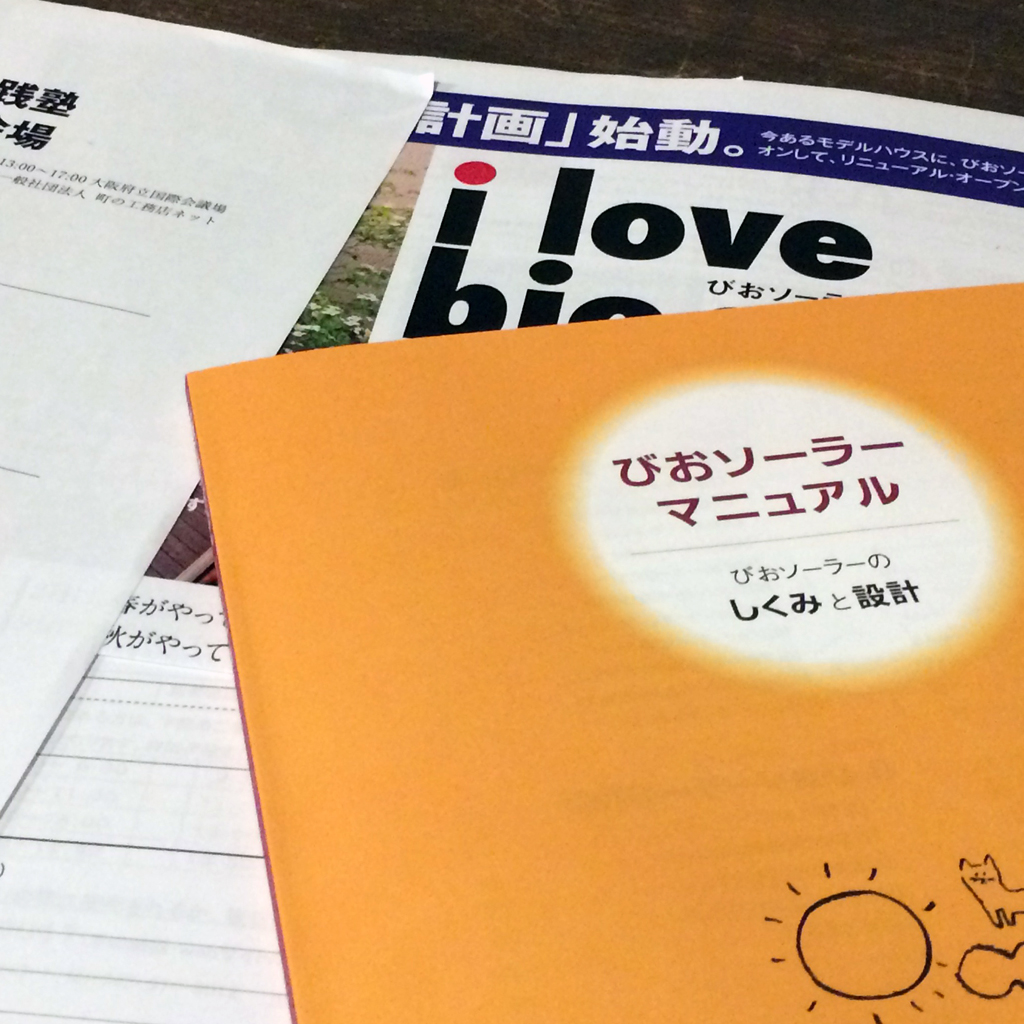 践塾
会場
13:00~17:00 大阪府立国際会議場
一般社団法人 町の工務店ネット
計画」始動。
今あるモデルハウスに、びおソー
オンして、リニューアル・オープン
i love
びおソーラ
bio
す
春がやって
秋がやって
びおソーラー
マニュアル
びおソーラーの
しくみと設計